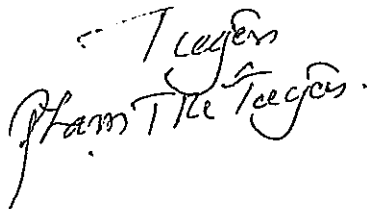 Tuyên
Phạm Thế Tuyên.